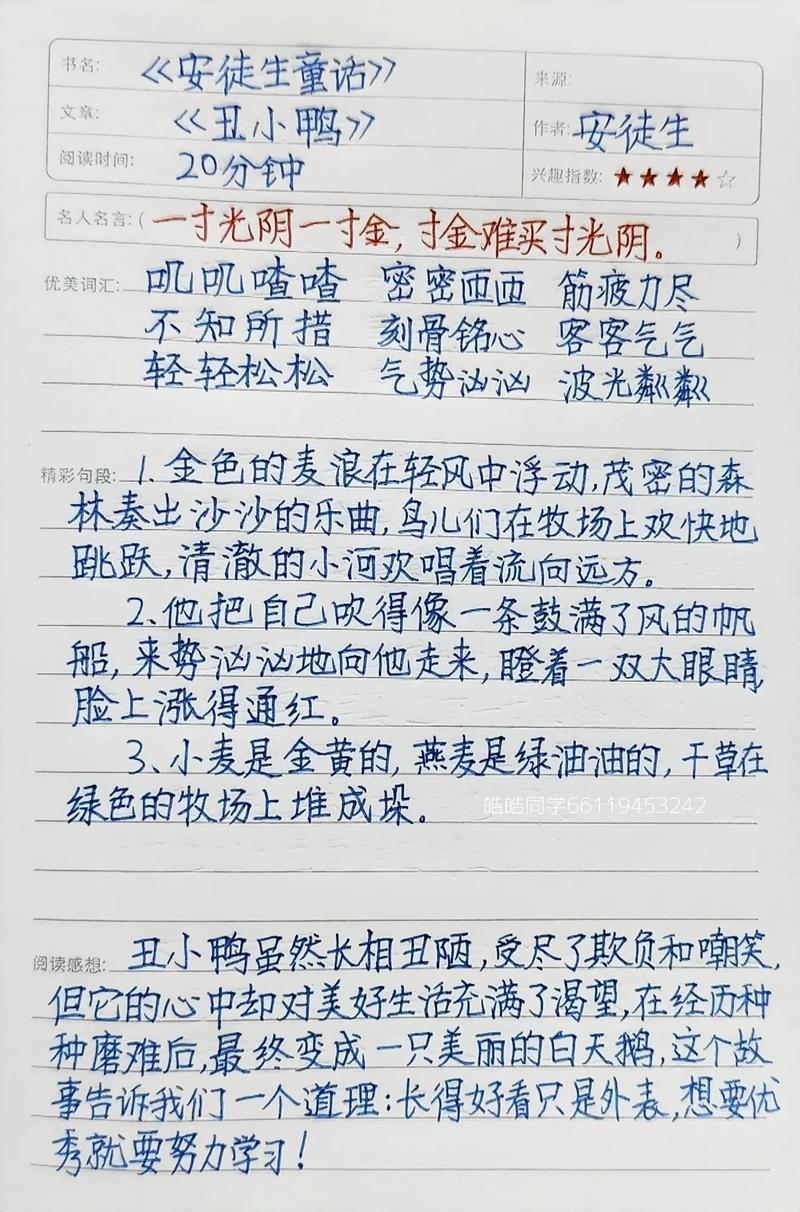 书名: 《安徒生童话》 来源:
文章: 《丑小鸭》 作者: 安徒生
阅读时间: 20分钟 兴趣指数: ★★★★☆
名人名言:( 一寸光阴一寸金, 寸金难买寸光阴。 )
优美词汇: 叽叽喳喳 密密西西 筋疲力尽
不知所措 刻骨铭心 客客气气
轻轻松松 气势汹汹 波光粼粼
精彩句段: 1.金色的麦浪在轻风中浮动,茂密的森
林奏出沙沙的乐曲,鸟儿们在牧场上欢快地
跳跃,清澈的小河欢唱着流向远方。
2、他把自己吹得像一条鼓满了风的帆
船,来势汹汹地向他走来,瞪着一双大眼睛,
脸上涨得通红。
3、小麦是金黄的,燕麦是绿油油的,干草在
绿色的牧场上堆成垛。
皓皓同学66119453242
阅读感想: 丑小鸭虽然长相丑陋,受尽了欺负和嘲笑,
但它的心中却对美好生活充满了渴望,在经历种
种磨难后,最终变成一只美丽的白天鹅,这个故
事告诉我们一个道理:长得好看只是外表,想要优
秀就要努力学习!